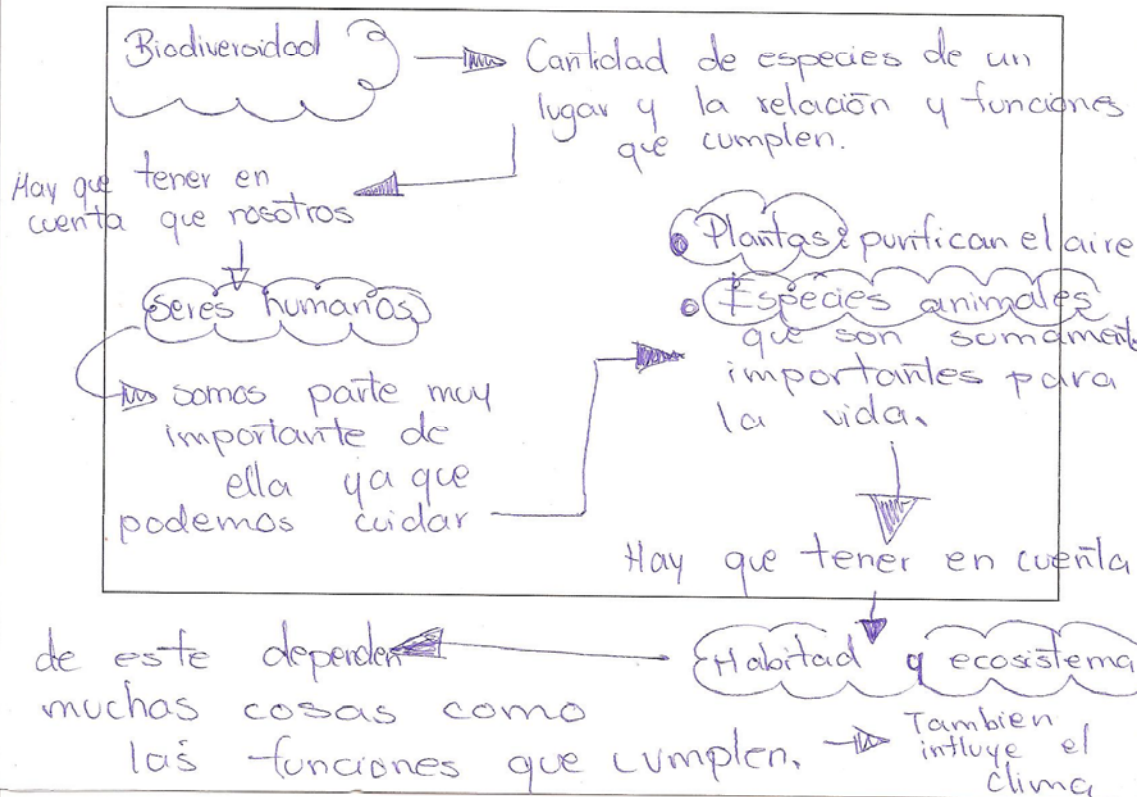 Biodiversidad
Cantidad de especies de un
lugar y la relación y funciones
que cumplen.
Hay que tener en
cuenta que nosotros
seres humanos
somos parte muy
importante de
ella ya que
podemos cuidar
Plantas: purifican el aire
Especies animales
que son sumament
importantes para
la vida.
Hay que tener en cuenta
Habitad y ecosistema
de este dependen
muchas cosas como
las funciones que cumplen.
Tambien
influye el
clima